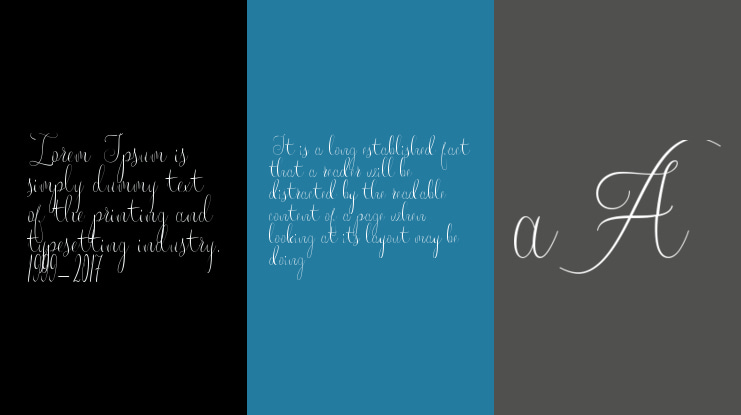 Lorem Ipsum is
simply dummy text
of the printing and
typesetting industry.
1999-2017
It is a long established fact
that a reader will be
distracted by the readable
content of a page when
looking at its layout may be
doing
a A